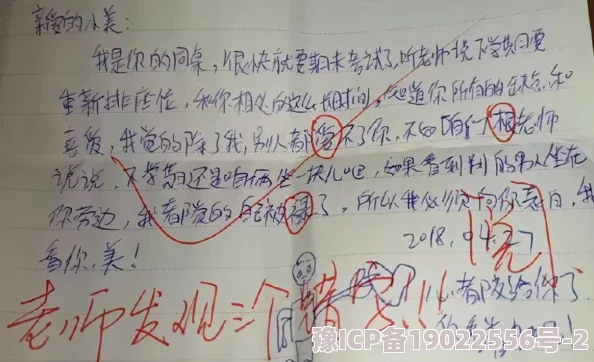 亲爱的小美：
我是你的同桌，很快就要期末考试了，听老师说下学期要
重新排座位，和你相处的这么长时间，知道你所有的缺点和
喜爱，我觉的除了我，别人都受不了你，不如咱们相老师
说说，下学期还是咱俩坐一块儿吧，如果看到别的男人坐在
你旁边，我都觉的自己被禄了，所以我必须向你表白，我
喜你，美！
2018.04.27
老师发现三个错
都改给你了
豫ICP备19022556号-2